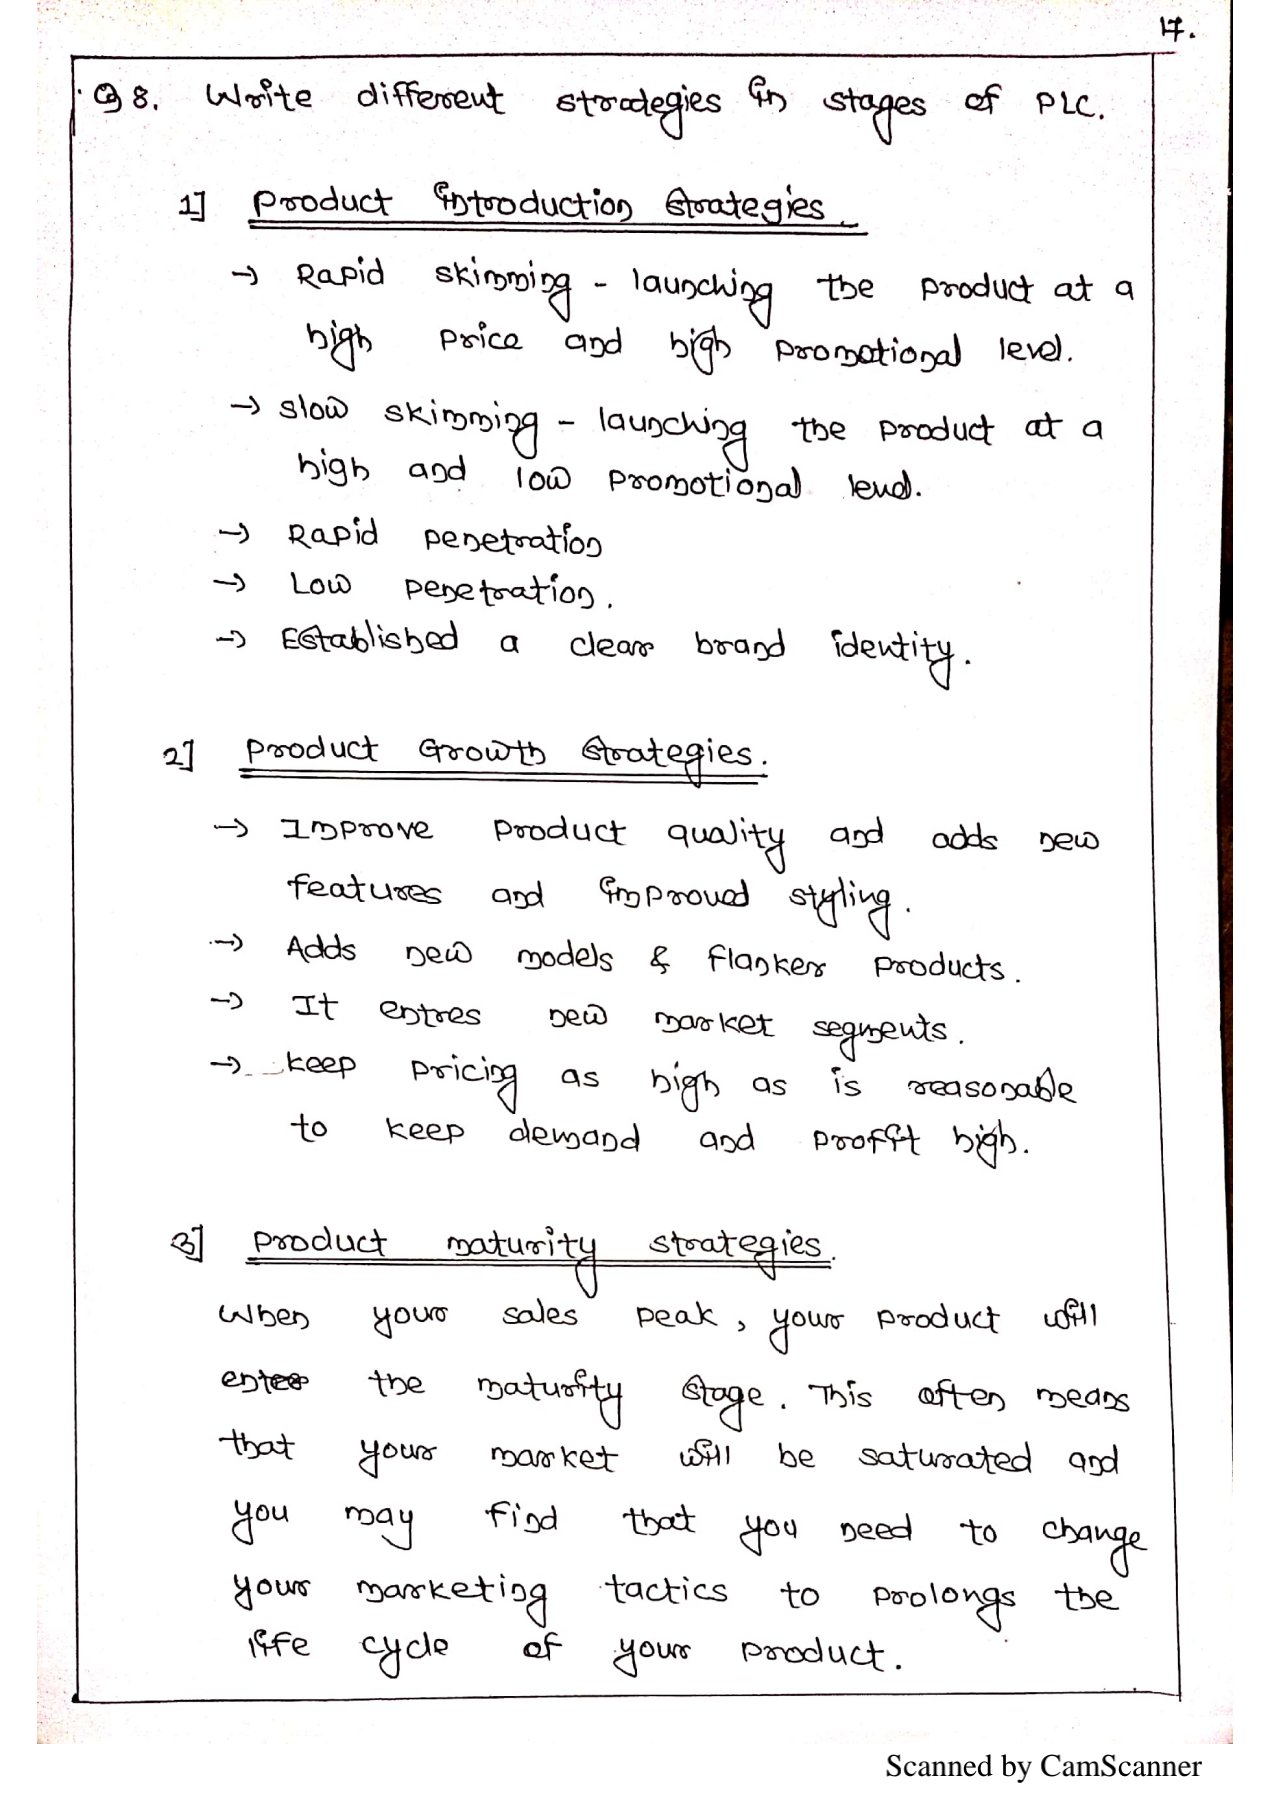 17.
Q 8. Write different strategies in stages of PLC.
1] Product introduction strategies.
→ Rapid skimming - launching the product at a
high price and high promotional level.
→ slow skimming - launching the product at a
high and low promotional level.
→ Rapid penetration
→ Low penetration.
→ Established a clear brand identity.
2] Product Growth strategies.
→ Improve product quality and adds new
features and improved styling.
→ Adds new models & flanker products.
→ It entres new market segments.
→ keep pricing as high as is reasonable
to keep demand and profit high.
3] Product maturity strategies.
When your sales peak, your product will
enter the maturity stage. This often means
that your market will be saturated and
you may find that you need to change
your marketing tactics to prolongs the
life cycle of your product.
Scanned by CamScanner